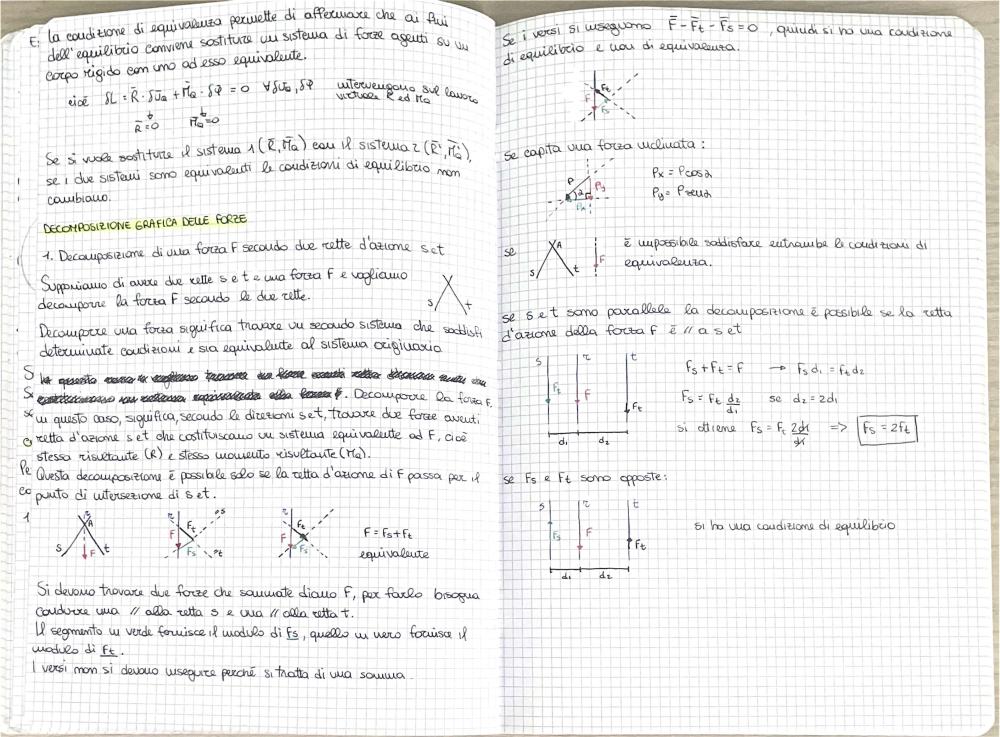 E: la condizione di equivalenza permette di affermare che ai fini
dell'equilibrio conviene sostituire un sistema di forze agenti su un
corpo rigido con uno ad esso equivalente.
cioè δL = R̄ · δūₐ + M̄ₐ · δφ̄ = 0 ∀ δūₐ, δφ̄ intervengono sul lavoro
virtuale R̄ ed M̄ₐ
R̄ = 0 M̄ₐ = 0
Se si vuole sostituire il sistema 1 (R̄, M̄ₐ) con il sistema 2 (R̄', M̄ₐ'),
se i due sistemi sono equivalenti le condizioni di equilibrio non
cambiano.
DECOMPOSIZIONE GRAFICA DELLE FORZE
1. Decomposizione di una forza F secondo due rette d'azione s e t
Supponiamo di avere due rette s e t e una forza F e vogliamo
decomporre la forza F secondo le due rette.
s t
Decomporre una forza significa trovare un secondo sistema che soddisfi
determinate condizioni e sia equivalente al sistema originario
Decomporre la forza F,
in questo caso, significa, secondo le direzioni s e t, trovare due forze aventi
retta d'azione s e t che costituiscano un sistema equivalente ad F, cioè
stessa risultante (R) e stesso momento risultante (Mₐ).
Questa decomposizione è possibile solo se la retta d'azione di F passa per il
punto di intersezione di s e t.
r A s F t
r F Ft Fs //s //t
r F Ft Fs
F = Fs + Ft
equivalente
Si devono trovare due forze che sommate diano F, per farlo bisogna
condurre una // alla retta s e una // alla retta t.
Il segmento in verde fornisce il modulo di Fs, quello in nero fornisce il
modulo di Ft.
I versi non si devono inseguire perché si tratta di una somma.
Se i versi si inseguono F̄ - F̄t - F̄s = 0, quindi si ha una condizione
di equilibrio e non di equivalenza.
F Ft Fs
Se capita una forza inclinata:
P α Py Px
Px = P cos α
Py = P sen α
se
A s t F
è impossibile soddisfare entrambe le condizioni di
equivalenza.
se s e t sono parallele la decomposizione è possibile se la retta
d'azione della forza F è // a s e t
s r t
Fs F Ft
d1 d2
Fs + Ft = F → Fs d1 = Ft d2
Fs = Ft d2/d1 se d2 = 2d1
si ottiene Fs = Ft 2d1/d1 => Fs = 2Ft
se Fs e Ft sono opposte:
s r t
Fs F Ft
d1 d2
si ha una condizione di equilibrio